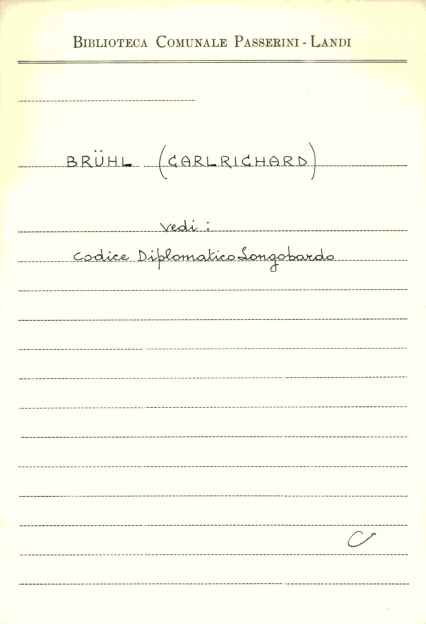 BIBLIOTECA COMUNALE PASSERINI - LANDI
BRÜHL (CARLRICHARD)
Vedi :
Codice Diplomatico Longobardo
C